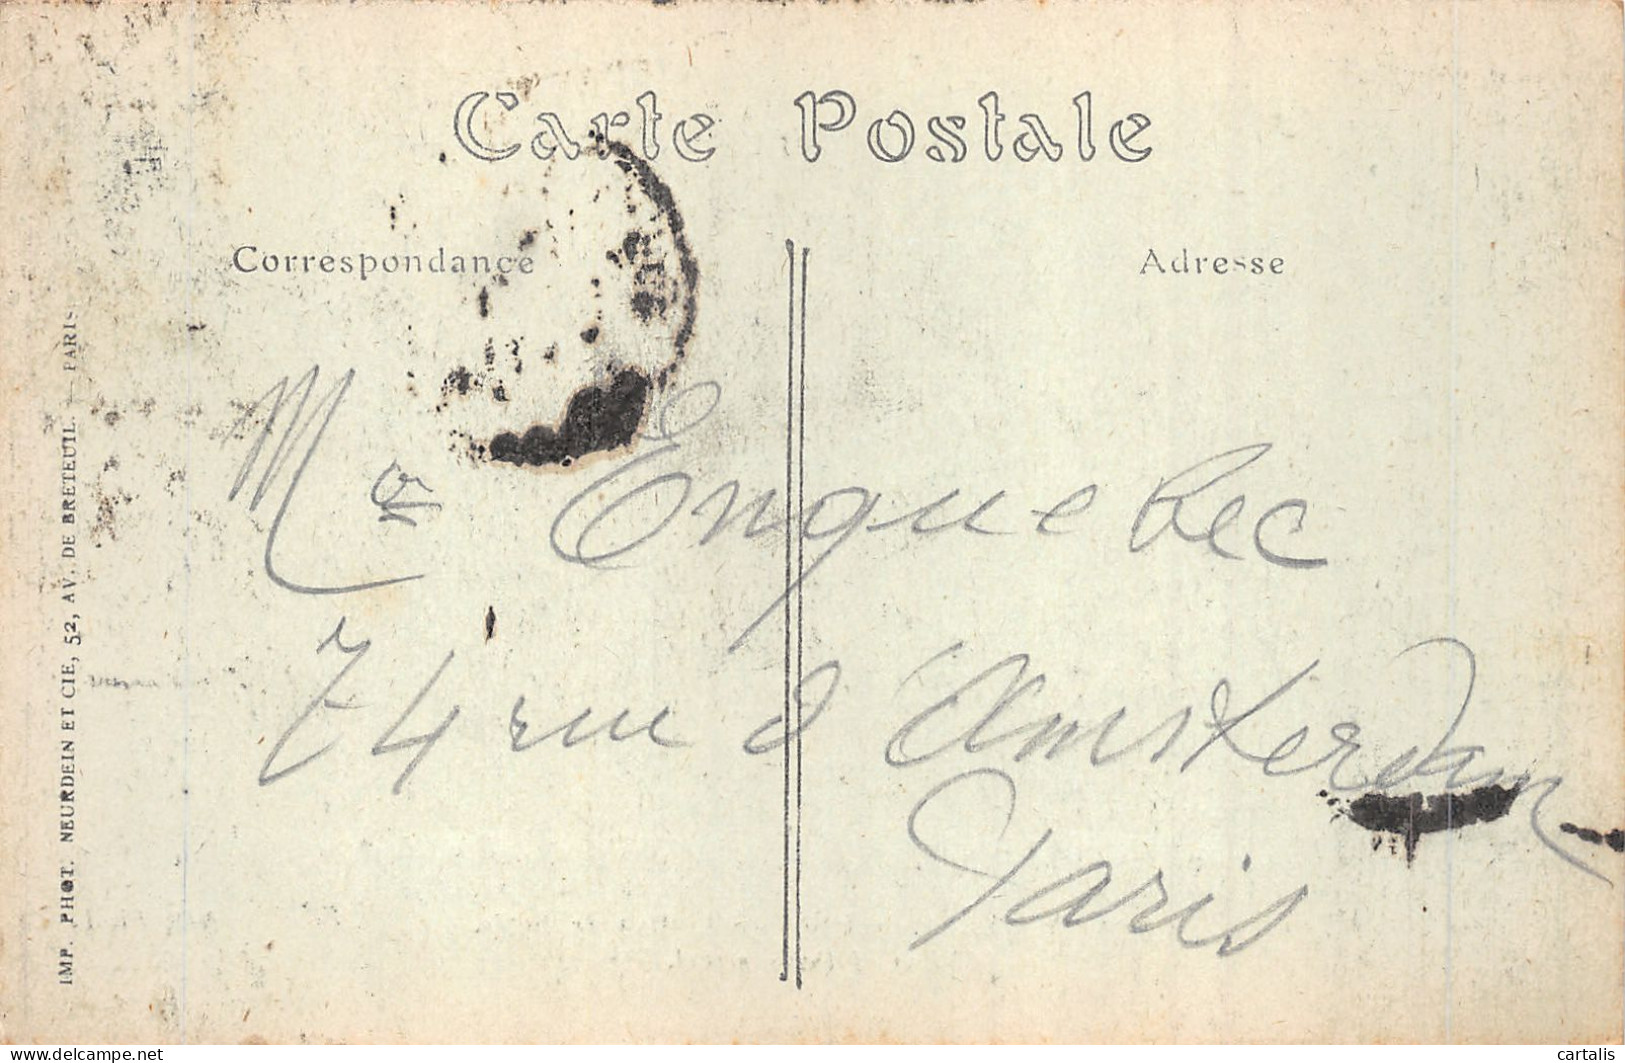 Carte Postale
Correspondance
Adresse
IMP. PHOT. NEURDEIN ET CIE, 52, AV. DE BRETEUIL. — PARIS
Mr Enquebec
74 rue d'Amsterdam
Paris
www.delcampe.net
cartalis